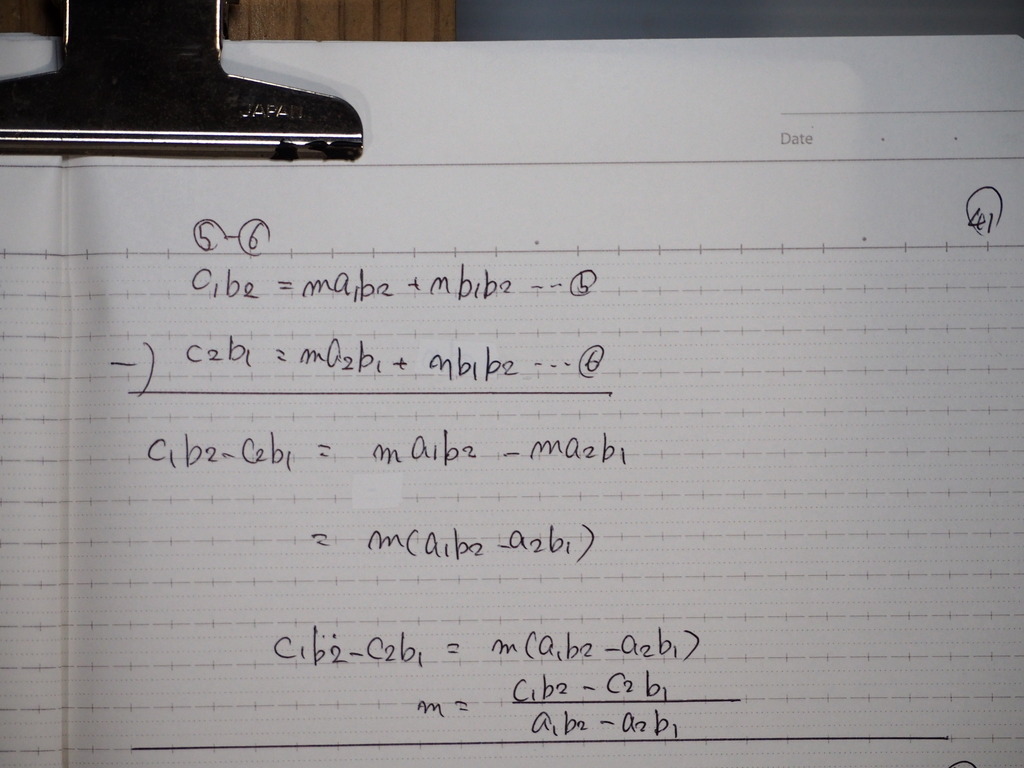 JAPAN
Date
41
⑤-⑥
c₁b₂ = ma₁b₂ + nb₁b₂ ---⑤
-) c₂b₁ = ma₂b₁ + nb₁b₂ ---⑥
c₁b₂-c₂b₁ = ma₁b₂ - ma₂b₁
= m(a₁b₂-a₂b₁)
c₁b₂-c₂b₁ = m(a₁b₂-a₂b₁)
m = \frac{c₁b₂-c₂b₁}{a₁b₂-a₂b₁}